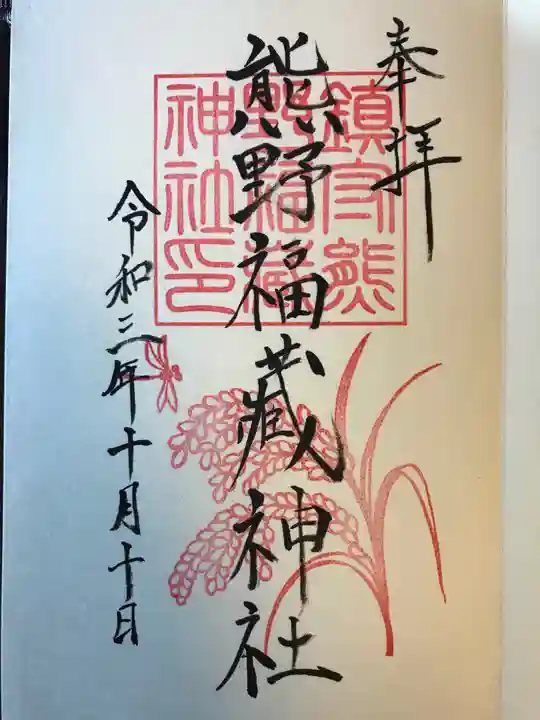 奉拝
熊野福藏神社
令和三年十月十日
鎮守熊
野福藏
神社印